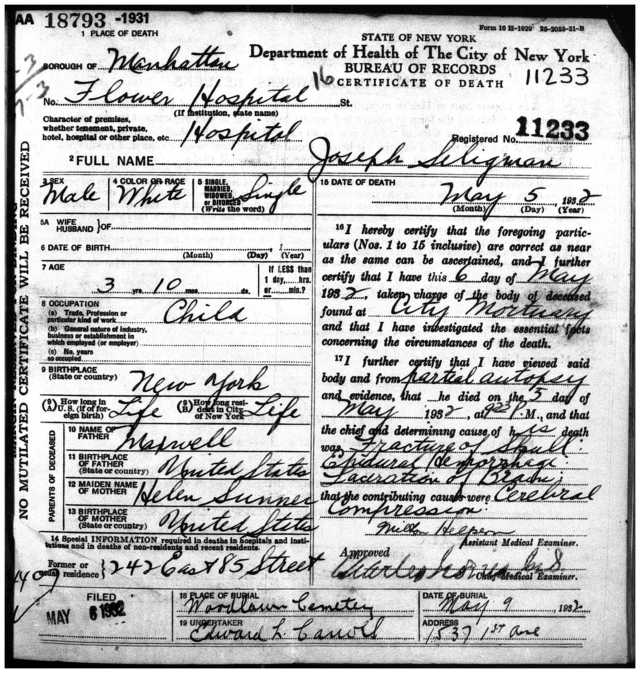 AA 18793 -1931
Form 10 H-1929 25-2053-31-B
1 PLACE OF DEATH
STATE OF NEW YORK
Department of Health of The City of New York
BUREAU OF RECORDS
CERTIFICATE OF DEATH
BOROUGH OF Manhattan
16
11233
No. Flower Hospital St.
(If institution, state name)
Character of premises,
whether tenement, private,
hotel, hospital or other place, etc Hospital
Registered No. 11233
2 FULL NAME Joseph Seligman
3 SEX
Male
4 COLOR OR RACE
White
5 SINGLE,
MARRIED,
WIDOWED,
OR DIVORCED
(Write the word)
Single
5A WIFE
HUSBAND } OF
6 DATE OF BIRTH
(Month) (Day) (Year)
7 AGE
3 yrs. 10 mos. ds.
If LESS than
1 day, hrs.
or min.?
8 OCCUPATION
(a) Trade, Profession or
particular kind of work
Child
(b) General nature of industry,
business or establishment in
which employed (or employer)
(c) No. years
so occupied
9 BIRTHPLACE
(State or country)
New York
(A) How long in
U. S. (if of for-
eign birth) Life
(B) How long resi-
dent in City
of New York Life
PARENTS OF DECEASED
10 NAME OF
FATHER
Maxwell
11 BIRTHPLACE
OF FATHER
(State or country)
United States
12 MAIDEN NAME
OF MOTHER
Helen
13 BIRTHPLACE
OF MOTHER
(State or country)
United States
14 Special INFORMATION required in deaths in hospitals and insti-
tutions and in deaths of non-residents and recent residents.
Former or
usual residence } 242 East 85 Street
15 DATE OF DEATH
May 5 1932
(Month) (Day) (Year)
16 I hereby certify that the foregoing partic-
ulars (Nos. 1 to 15 inclusive) are correct as near
as the same can be ascertained, and I further
certify that I have this 6 day of May
1932, taken charge of the body of deceased
found at City Mortuary
and that I have investigated the essential facts
concerning the circumstances of the death.
17 I further certify that I have viewed said
body and from partial autopsy
and evidence, that he died on the 5 day of
May 1932, at P.M., and that
the chief and determining cause of his death
was Fracture of Skull.
Epidural Hemorrhage.
Laceration of Brain;
that the contributing causes were Cerebral
Compression.
Milton Helpern
Assistant Medical Examiner.
Approved
Charles Norris
Chief Medical Examiner.
FILED
MAY 6 1932
18 PLACE OF BURIAL
Woodlawn Cemetery
DATE OF BURIAL
May 9 1932
19 UNDERTAKER
Edward L. Carroll
ADDRESS
1537 1st Ave
NO MUTILATED CERTIFICATE WILL BE RECEIVED